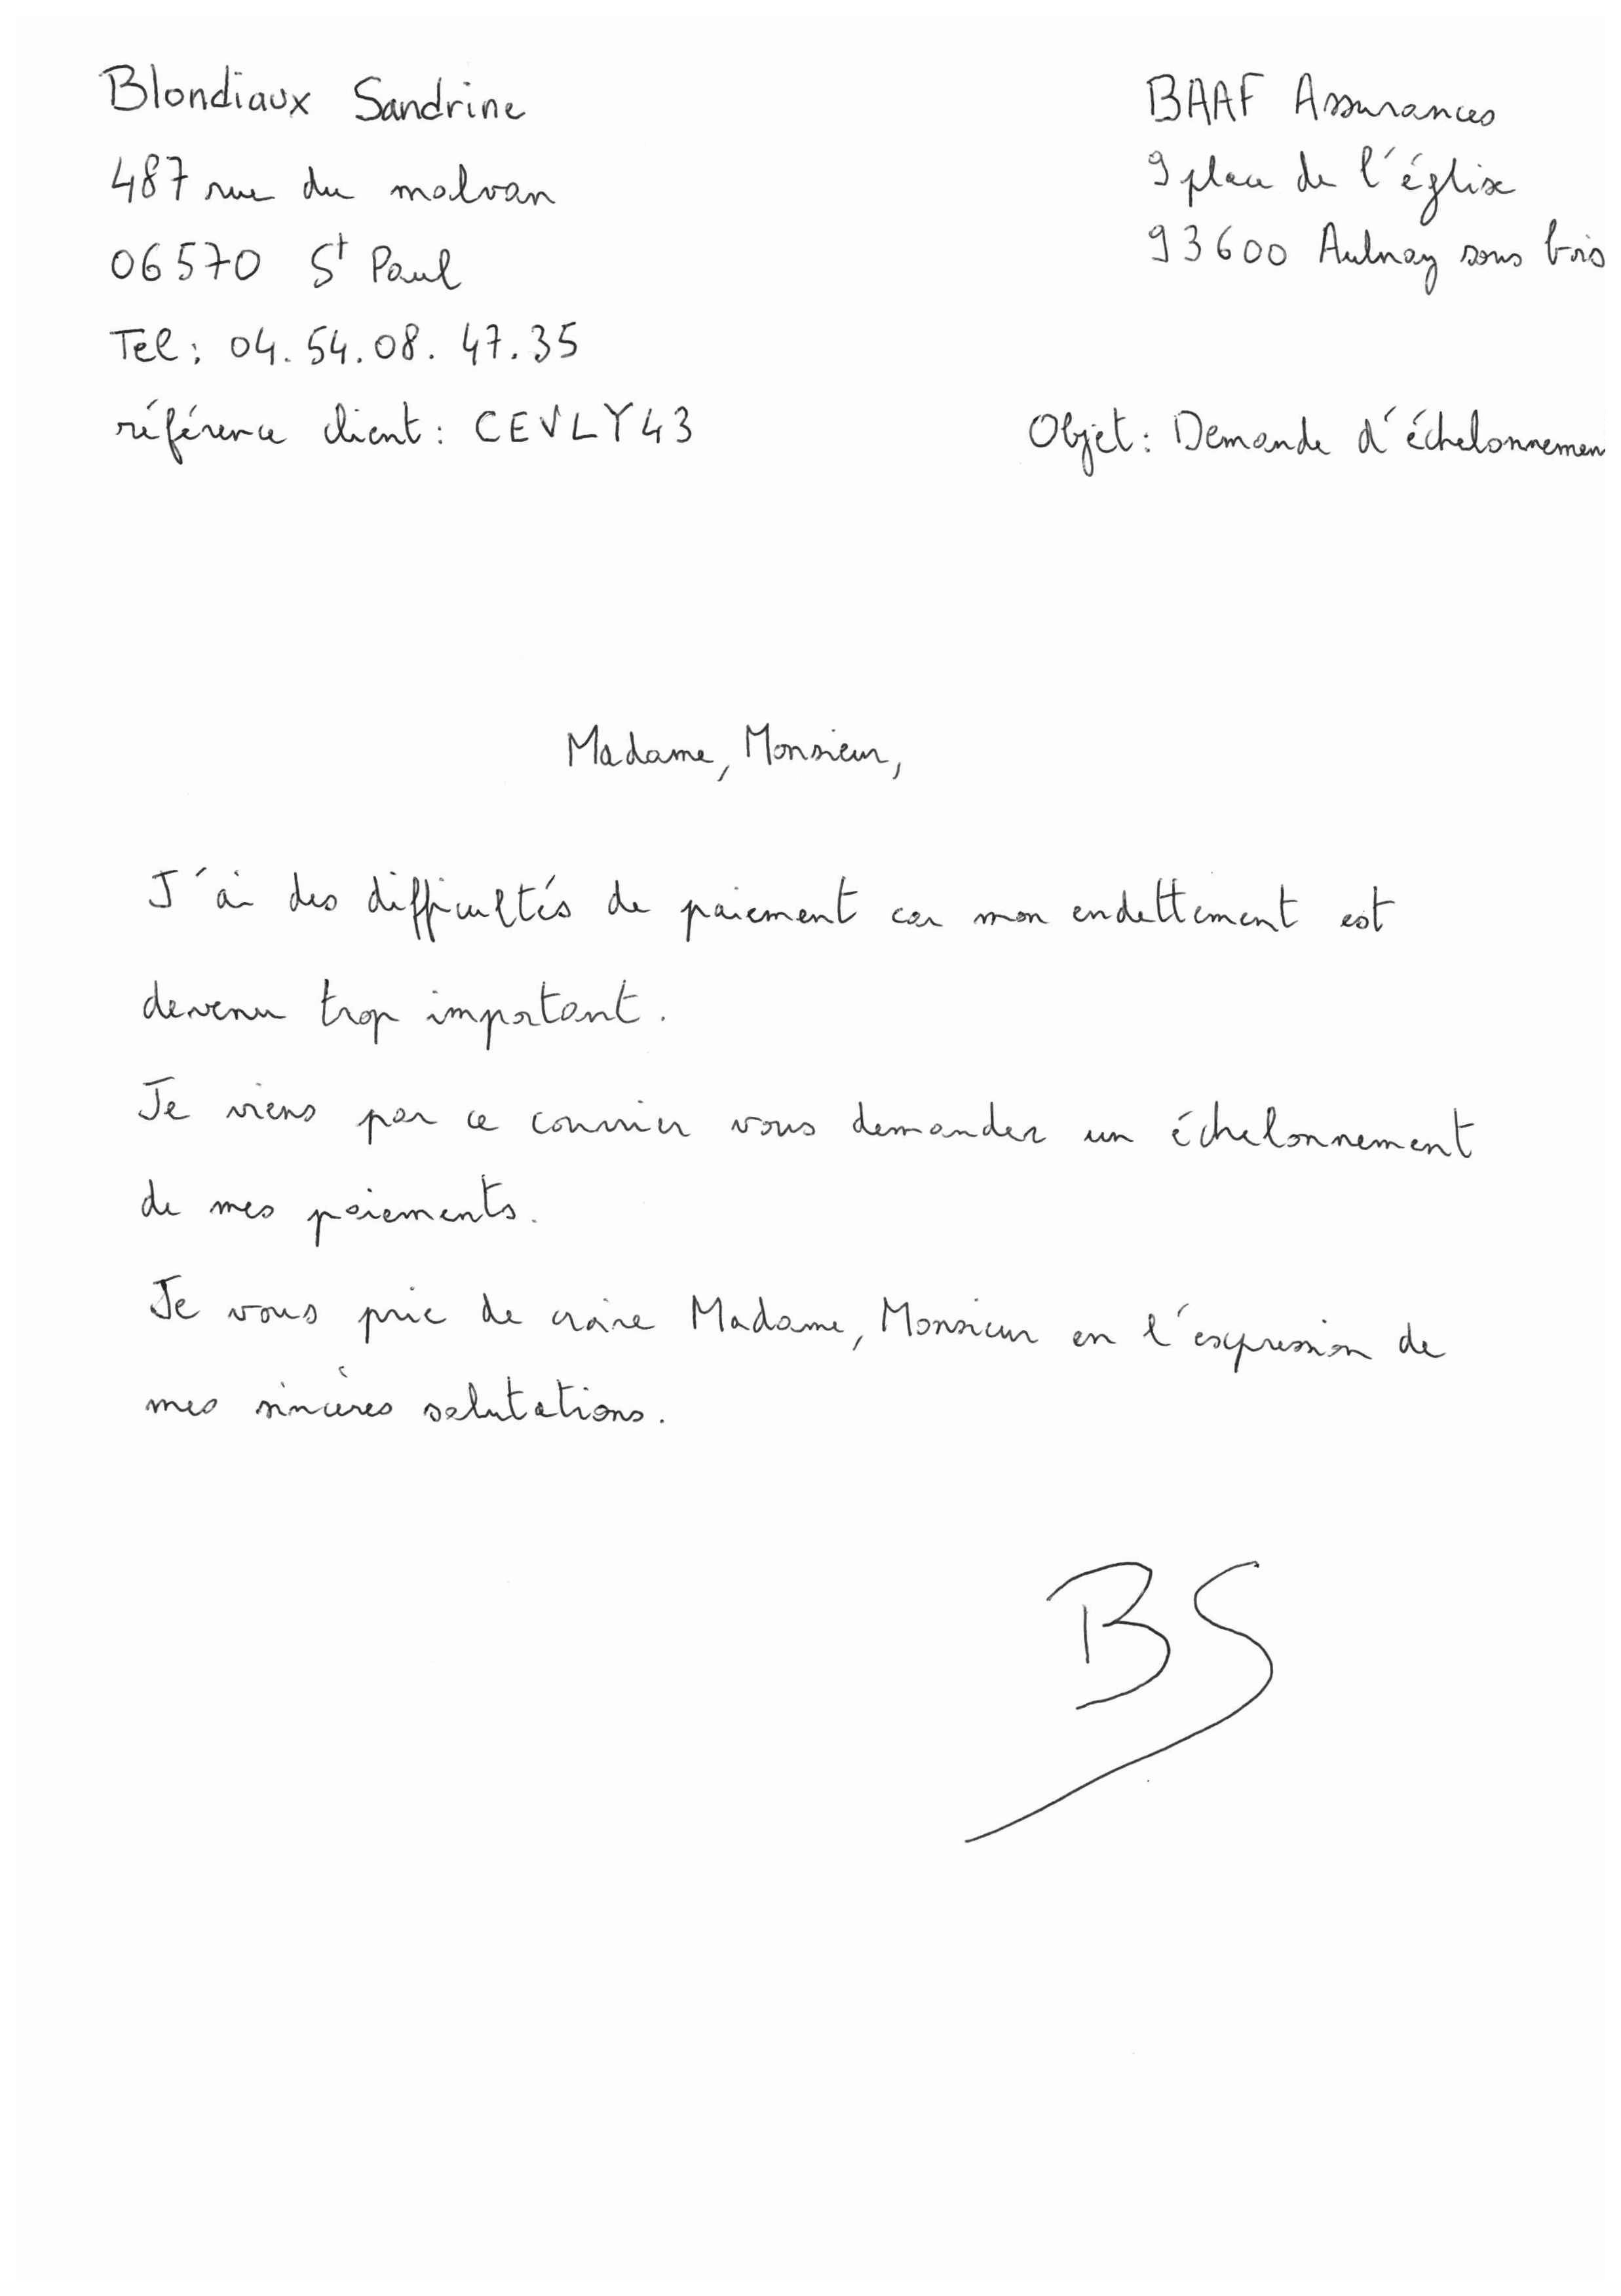 Blondiaux Sandrine
487 rue du malvan
06570 St Paul
Tel : 04.54.08.47.35
référence client : CEVLY43
BAAF Assurances
9 place de l'église
93600 Aulnay sous bois
Objet : Demande d'échelonnemen
Madame, Monsieur,
J'ai des difficultés de paiement car mon endettement est
devenu trop important.
Je viens par ce courrier vous demander un échelonnement
de mes paiements.
Je vous prie de croire Madame, Monsieur en l'expression de
mes sincères salutations.
BS